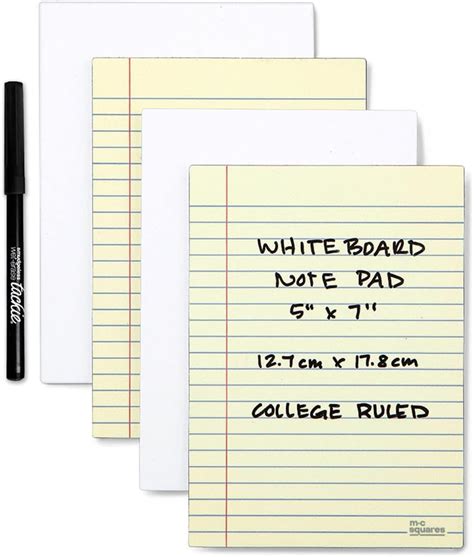 smudgeless
wet-erase tackie.
WHITEBOARD
NOTE PAD
5" x 7"
12.7cm x 17.8cm
COLLEGE RULED
m·c
squares